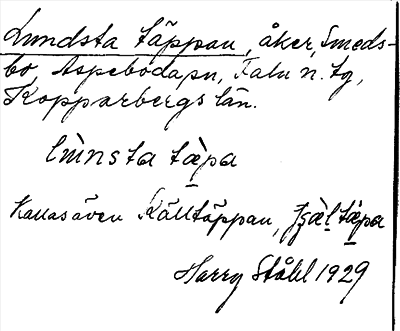 Lundsta täppan, åker, Smeds-
bo, Aspebodapn, Falu n. tg,
Kopparbergs län.
lùnsta tæ̀pa
Kallas även Källtäppan,
Harry Ståhl 1929